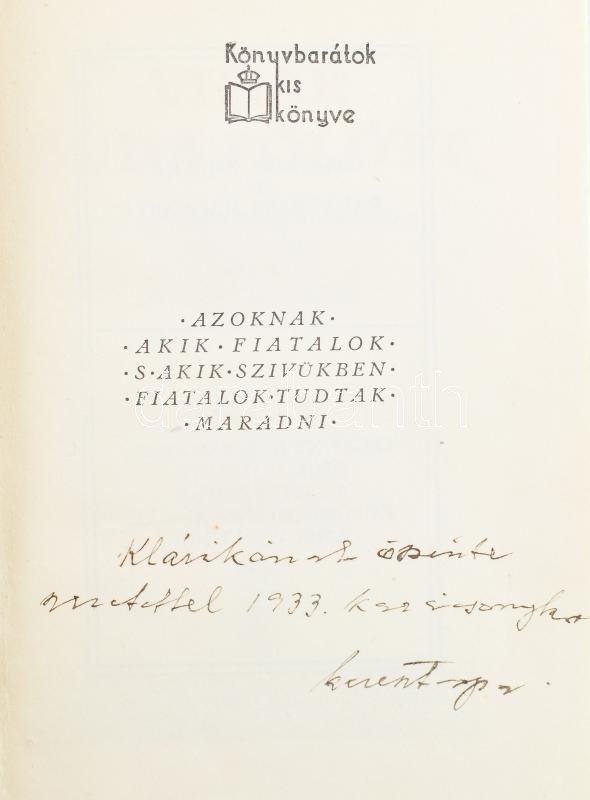 Könyvbarátok
kis
könyve
·AZOKNAK·
·AKIK·FIATALOK·
·S·AKIK·SZIVÜKBEN·
·FIATALOK·TUDTAK·
·MARADNI·
darabanth
Klárikának őszinte
szeretettel 1933. karácsonyko
kereszt apa.